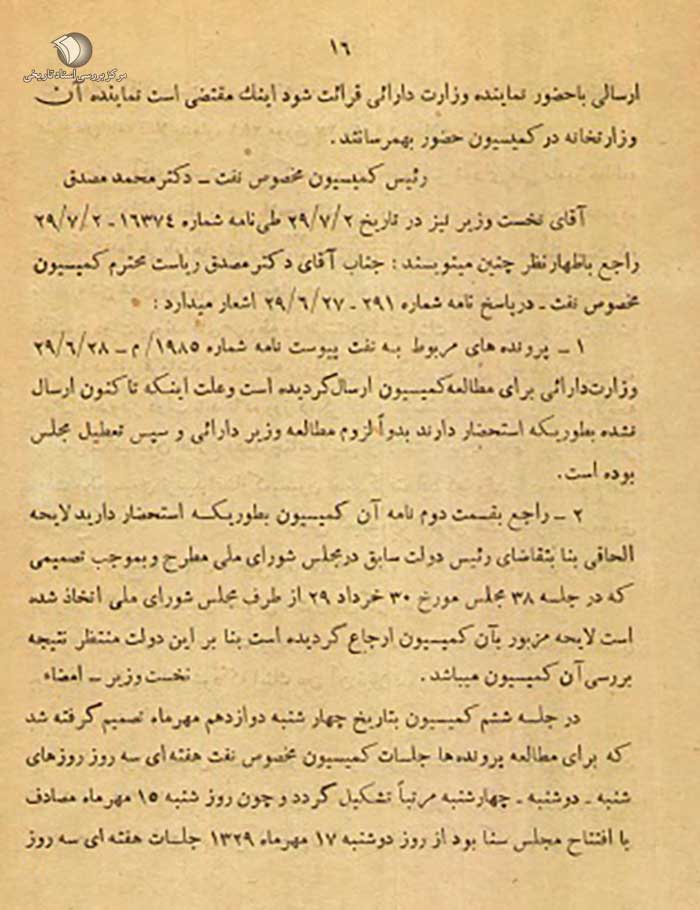 مرکز بررسی اسناد تاریخی
۱۶
ارسالی باحضور نماینده وزارت دارائی قرائت شود اینك مقتضی است نماینده آن
وزارتخانه در کمیسیون حضور بهمرسانند.
رئیس کمیسیون مخصوص نفت ـ دکتر محمد مصدق
آقای نخست وزیر نیز در تاریخ ۲۹/۷/۲ طی نامه شماره ۱۶۳۷۴ ـ ۲۹/۷/۲
راجع باظهار نظر چنین مینویسند: جناب آقای دکتر مصدق ریاست محترم کمیسیون
مخصوص نفت ـ در پاسخ نامه شماره ۲۹۱ ـ ۲۹/۶/۲۷ اشعار میدارد:
۱ ـ پرونده های مربوط به نفت پیوست نامه شماره ۱۹۸۵/م ـ ۲۹/۶/۲۸
وزارت دارائی برای مطالعه کمیسیون ارسال گردیده است وعلت اینکه تاکنون ارسال
نشده بطوریکه استحضار دارند بدواً لزوم مطالعه وزیر دارائی و سپس تعطیل مجلس
بوده است.
۲ ـ راجع بقسمت دوم نامه آن کمیسیون بطوریکه استحضار دارید لایحه
الحاقی بنا بتقاضای رئیس دولت سابق در مجلس شورای ملی مطرح و بموجب تصمیمی
که در جلسه ۳۸ مجلس مورخ ۳۰ خرداد ۲۹ از طرف مجلس شورای ملی اتخاذ شده
است لایحه مزبور بآن کمیسیون ارجاع گردیده است بنا بر این دولت منتظر نتیجه
بررسی آن کمیسیون میباشد. نخست وزیر ـ امضاء
در جلسه ششم کمیسیون بتاریخ چهار شنبه دوازدهم مهرماه تصمیم گرفته شد
که برای مطالعه پرونده‌ها جلسات کمیسیون مخصوص نفت هفته ای سه روز روزهای
شنبه ـ دوشنبه ـ چهارشنبه مرتباً تشکیل گردد و چون روز شنبه ۱۵ مهرماه مصادف
با افتتاح مجلس سنا بود از روز دوشنبه ۱۷ مهرماه ۱۳۲۹ جلسات هفته ای سه روز